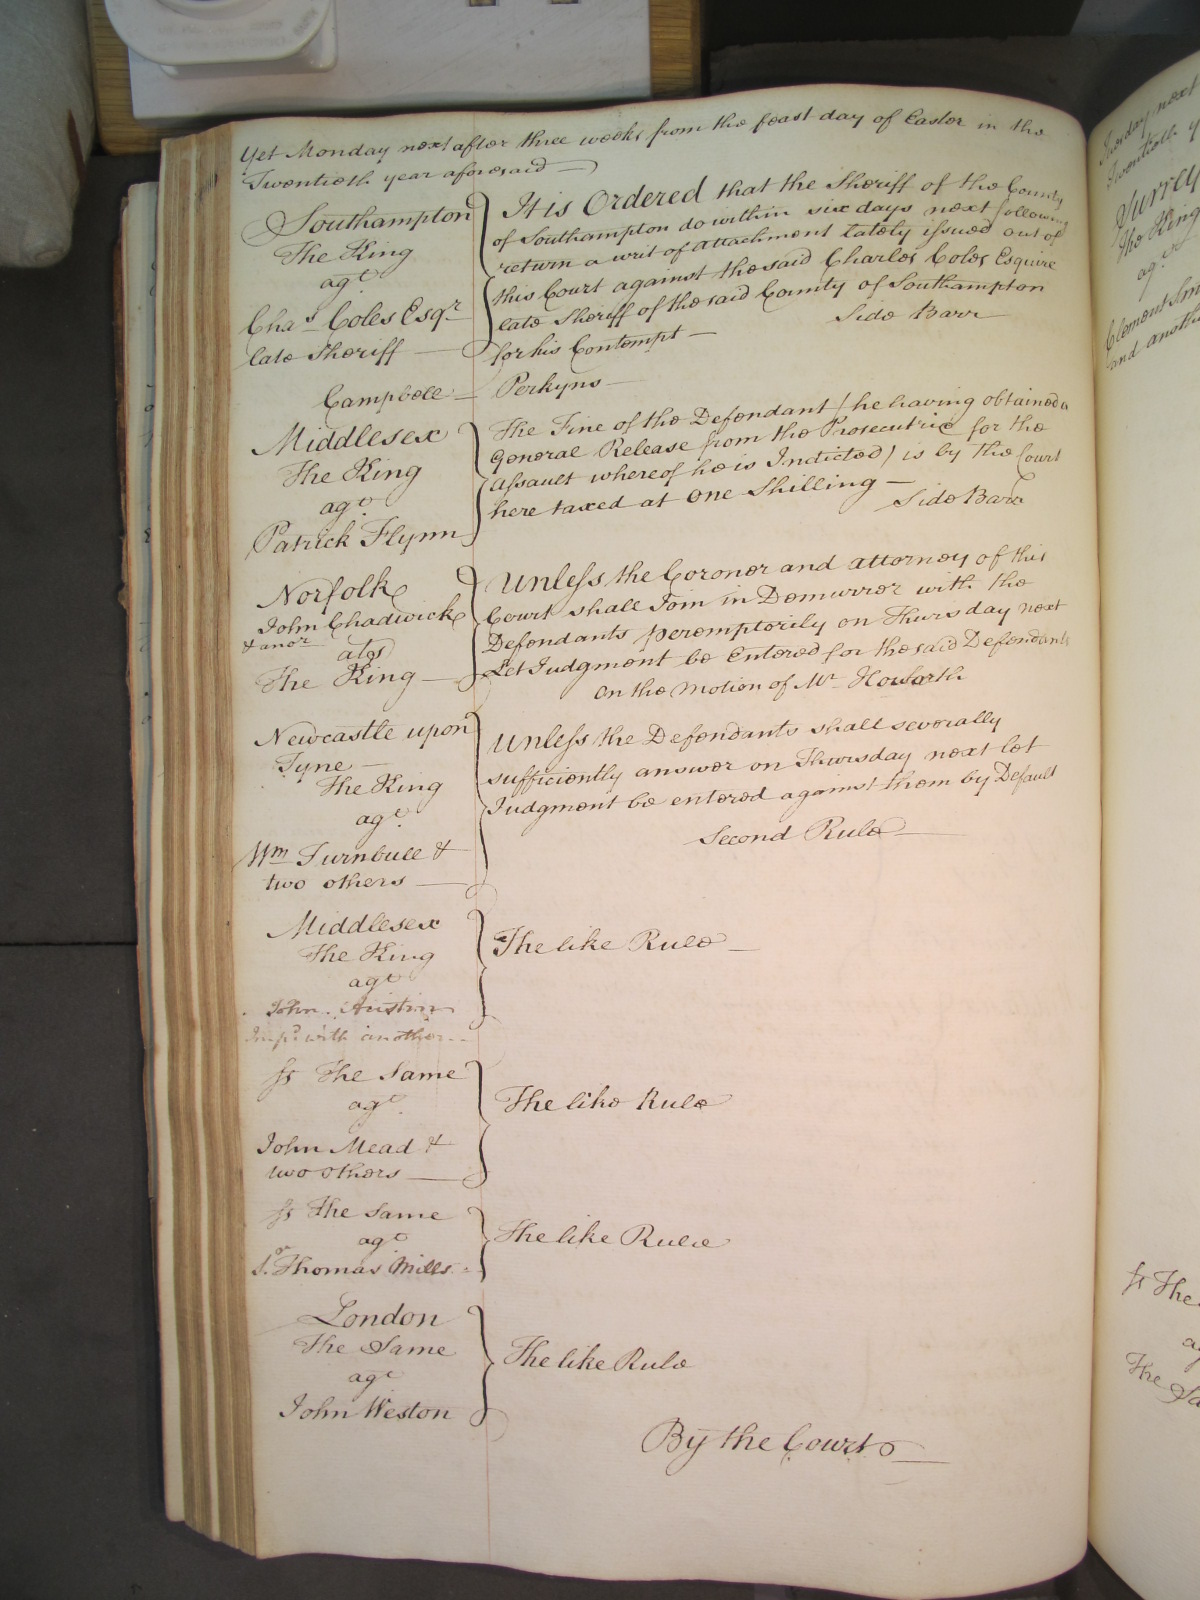 Yet Monday next after three weeks from the feast day of Easter in the
Twentieth year aforesaid —
Southampton
The King
agt
Chas Coles Esqr
late Sheriff —
It is Ordered that the Sheriff of the County
of Southampton do within six days next following
return a writ of Attachment lately issued out of
this Court against the said Charles Coles Esquire
late Sheriff of the said County of Southampton
for his Contempt —
Side Barr
Campbell — Perkyns —
Middlesex
The King
agt
Patrick Flynn
The Fine of the Defendant (he having obtained a
General Release from the Prosecutrix for the
Assault whereof he is Indicted) is by the Court
here taxed at One Shilling —
Side Barr
Norfolk
John Chadwick
& anor
ats
The King —
Unless the Coroner and Attorney of this
Court shall Join in Demurrer with the
Defendants peremptorily on Thursday next
Let Judgment be Entered for the said Defendants
On the Motion of Mr Howorth
Newcastle upon
Tyne —
The King
agt
Wm Turnbull &
two others —
Unless the Defendants shall severally
sufficiently answer on Thursday next let
Judgment be entered against them by Default
Second Rule —
Middlesex
The King
agt
John Austin
Impd with another --
The like Rule —
Ss The Same
agt
John Mead &
two others —
The like Rule
Ss The Same
agt
Sr Thomas Mills -
The like Rule
London
The Same
agt
John Weston
The like Rule
By the Court —
Tuesday next
Twentieth y
Surry
The King
agt
Clement Sm
and anoth
Ss The
ag
The Sa